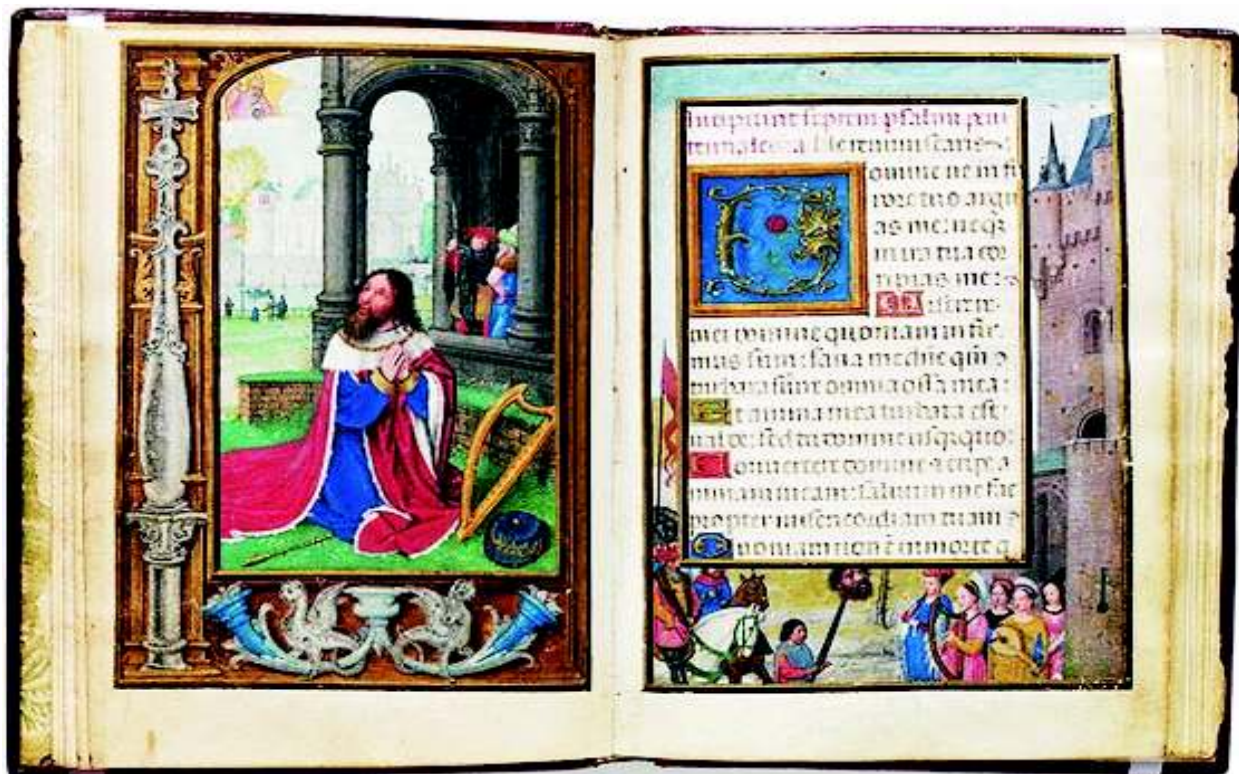 Incipiunt septem psalmi peni
Domine ne in fu
rore tuo argu
as me: neq̄
in ira tua cor
ripias me:
Miserere
mei domine quoniam infir
mus sum: sana me dn̄e qm̄
turbata sunt omnia ossa mea:
Et anima mea turbata est
ualde: sed tu domine usq̄quo:
Conuertere domine et eripe a
nimam meam: saluum me fac
propter misericordiam tuam
Quoniam non ē in morte q